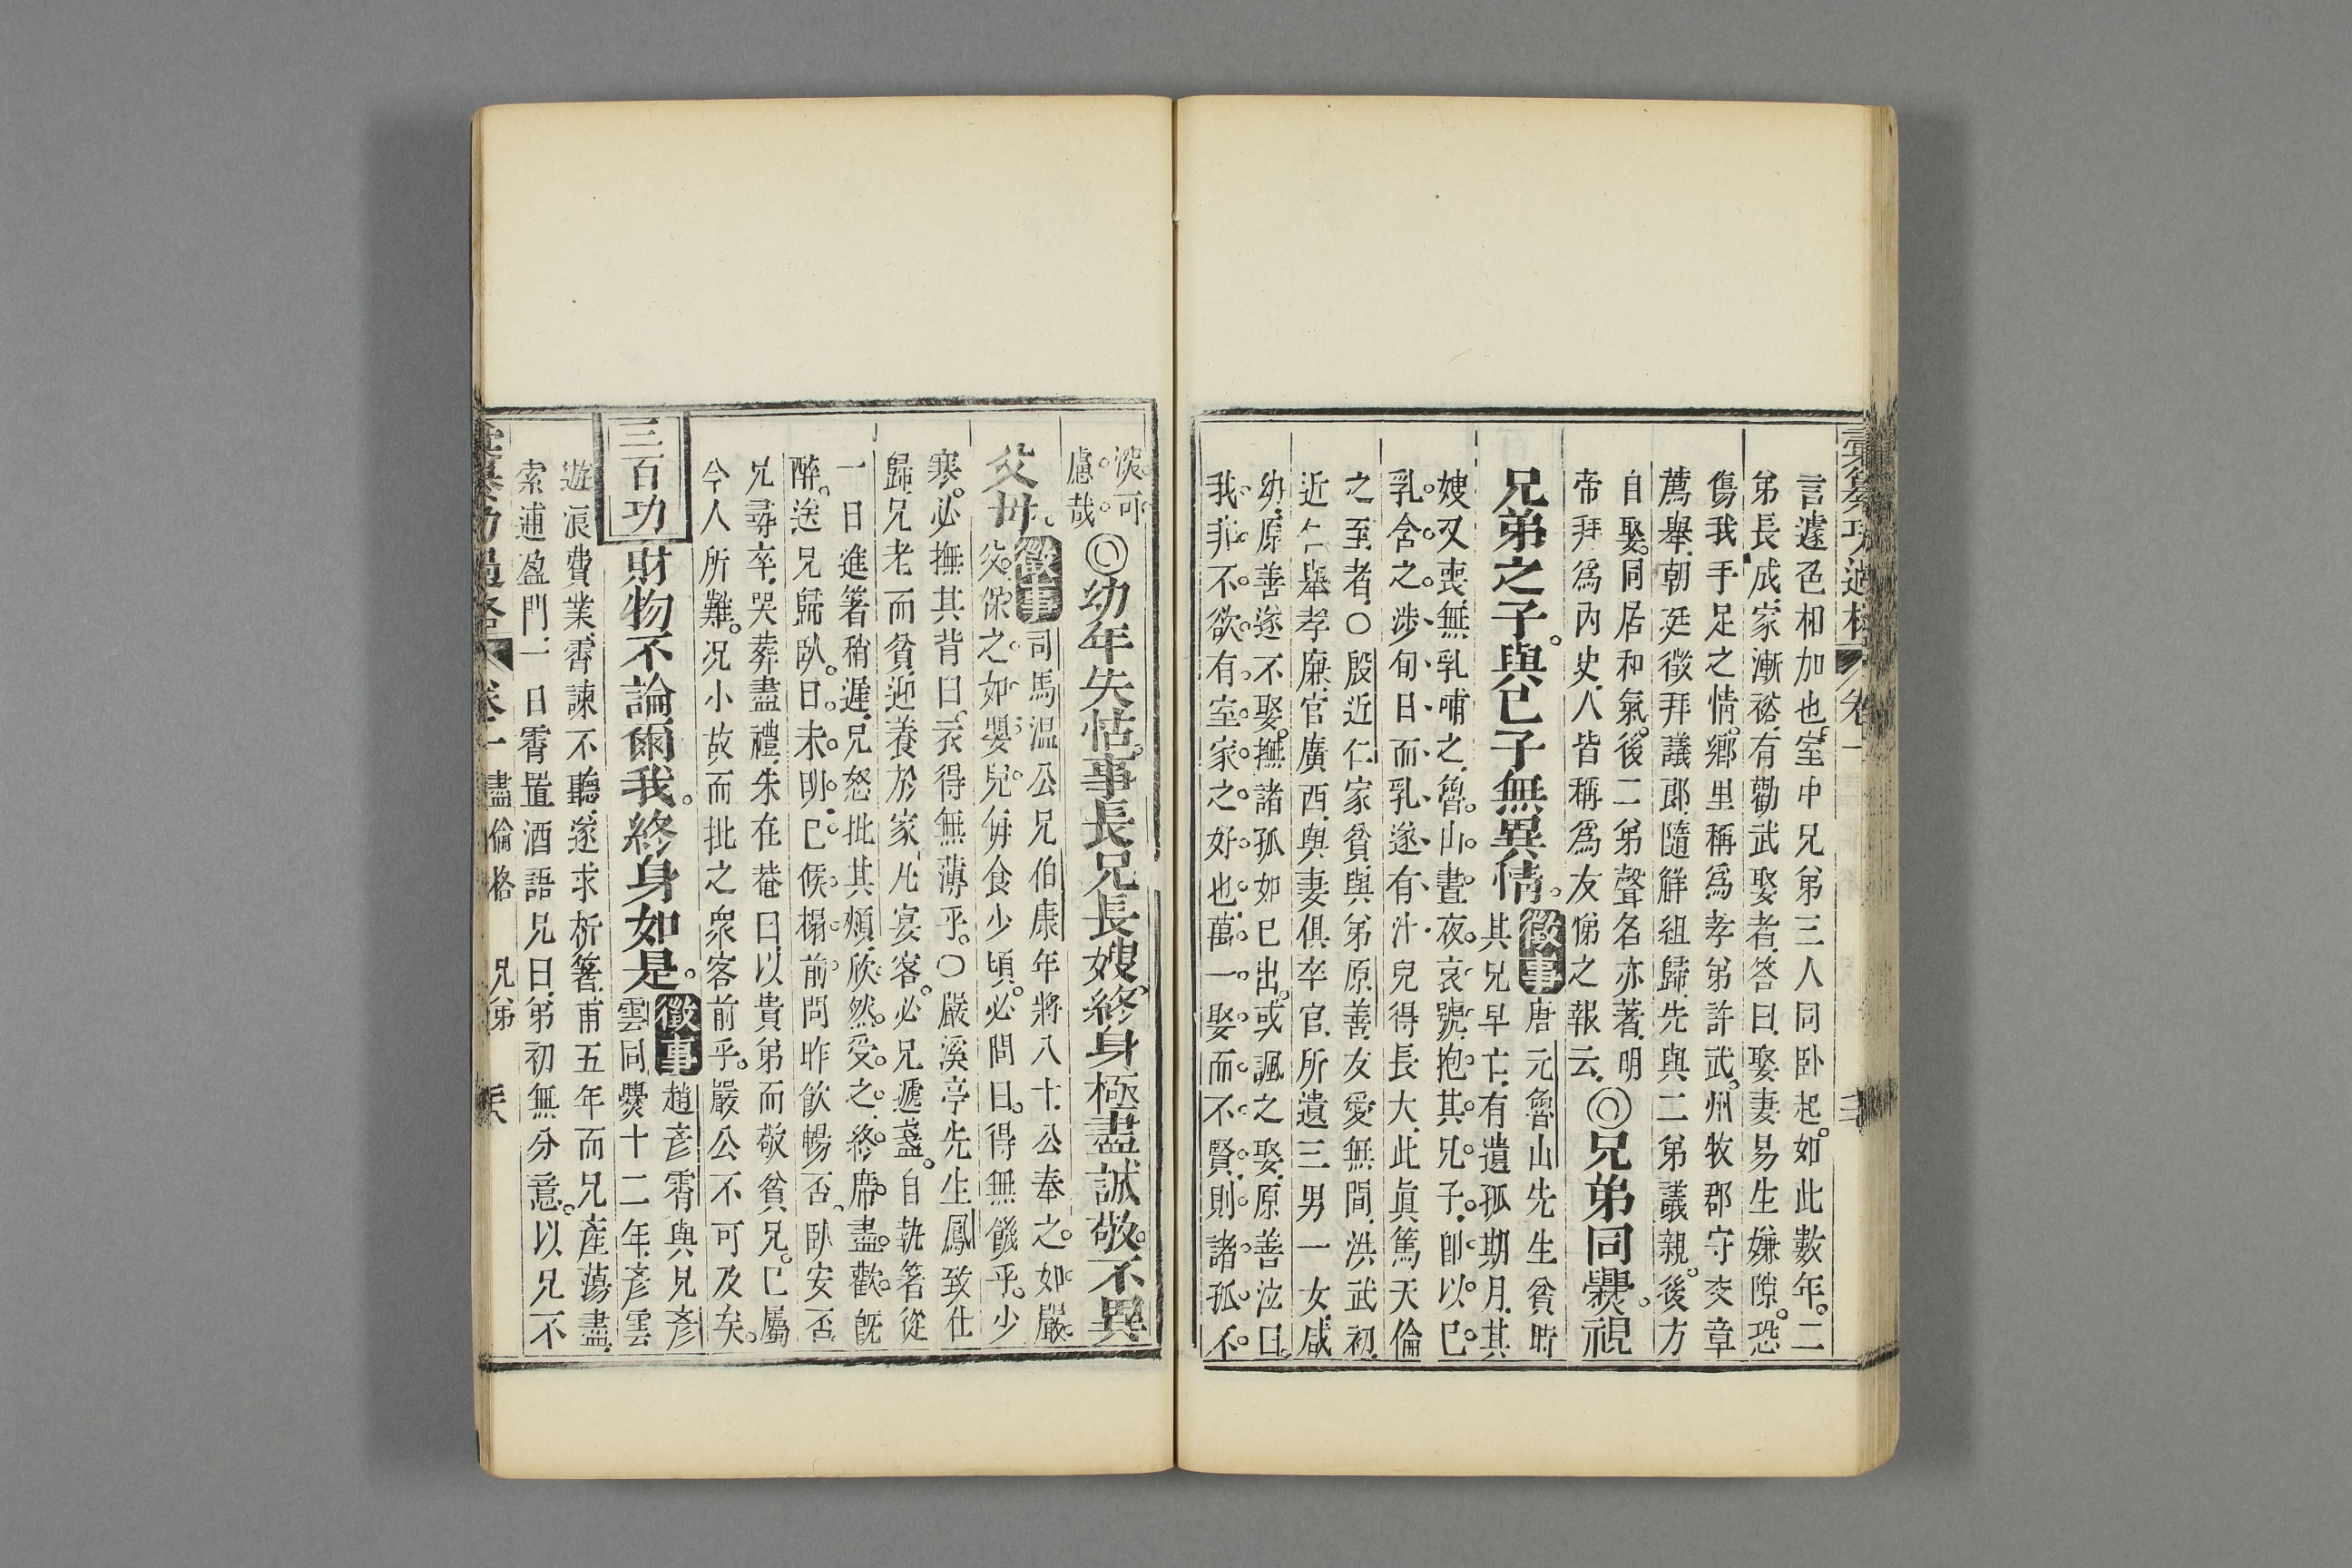 彙纂功過格 卷一
言遽色相加也室中兄弟三人同卧起如此數年二
弟長成家漸裕有勸武娶者答曰娶妻易生嫌隙恐
傷我手足之情鄉里稱為孝弟許武州牧郡守交章
薦舉朝廷徵拜議郎隨解組歸先與二弟議親後方
自娶同居和氣後二弟聲名亦著明
帝拜為內史人皆稱為友悌之報云
◎兄弟同爨視
兄弟之子與已子無異情
徵事
唐元魯山先生貧時
其兄早亡有遺孤期月其
嫂又喪無乳哺之魯山晝夜哀號抱其兄子卽以已
乳含之涉旬日而乳遂有汁兒得長大此眞篤天倫
之至者○殷近仁家貧與弟原善友愛無間洪武初
近仁舉孝廉官廣西與妻俱卒官所遺三男一女咸
幼原善遂不娶撫諸孤如已出或諷之娶原善泣曰
我非不欲有室家之好也萬一娶而不賢則諸孤不
深可
慮哉
◎幼年失怙事長兄長嫂終身極盡誠敬不異
父母
徵事
司馬温公兄伯康年將八十公奉之如嚴
父保之如嬰兒每食少頃必問曰得無饑乎少
寒必撫其背曰衣得無薄乎○嚴溪亭先生鳳致仕
歸兄老而貧迎養於家凡宴客必兄遞盞自執箸從
一日進箸稍遲兄怒批其頰欣然受之終席盡歡旣
醉送兄歸臥日未明已候榻前問昨飲暢否臥安否
兄尋卒哭葬盡禮朱在菴曰以貴弟而敬貧兄已屬
今人所難況小故而批之衆客前乎嚴公不可及矣
三百功
財物不論爾我終身如是
徵事
趙彥霄與兄彥
雲同爨十二年彥雲
遊浪費業霄諫不聽遂求析箸甫五年而兄產蕩盡
索逋盈門一日霄置酒語兄曰弟初無分意以兄不
彙纂功過格 卷一 盡倫格 兄弟